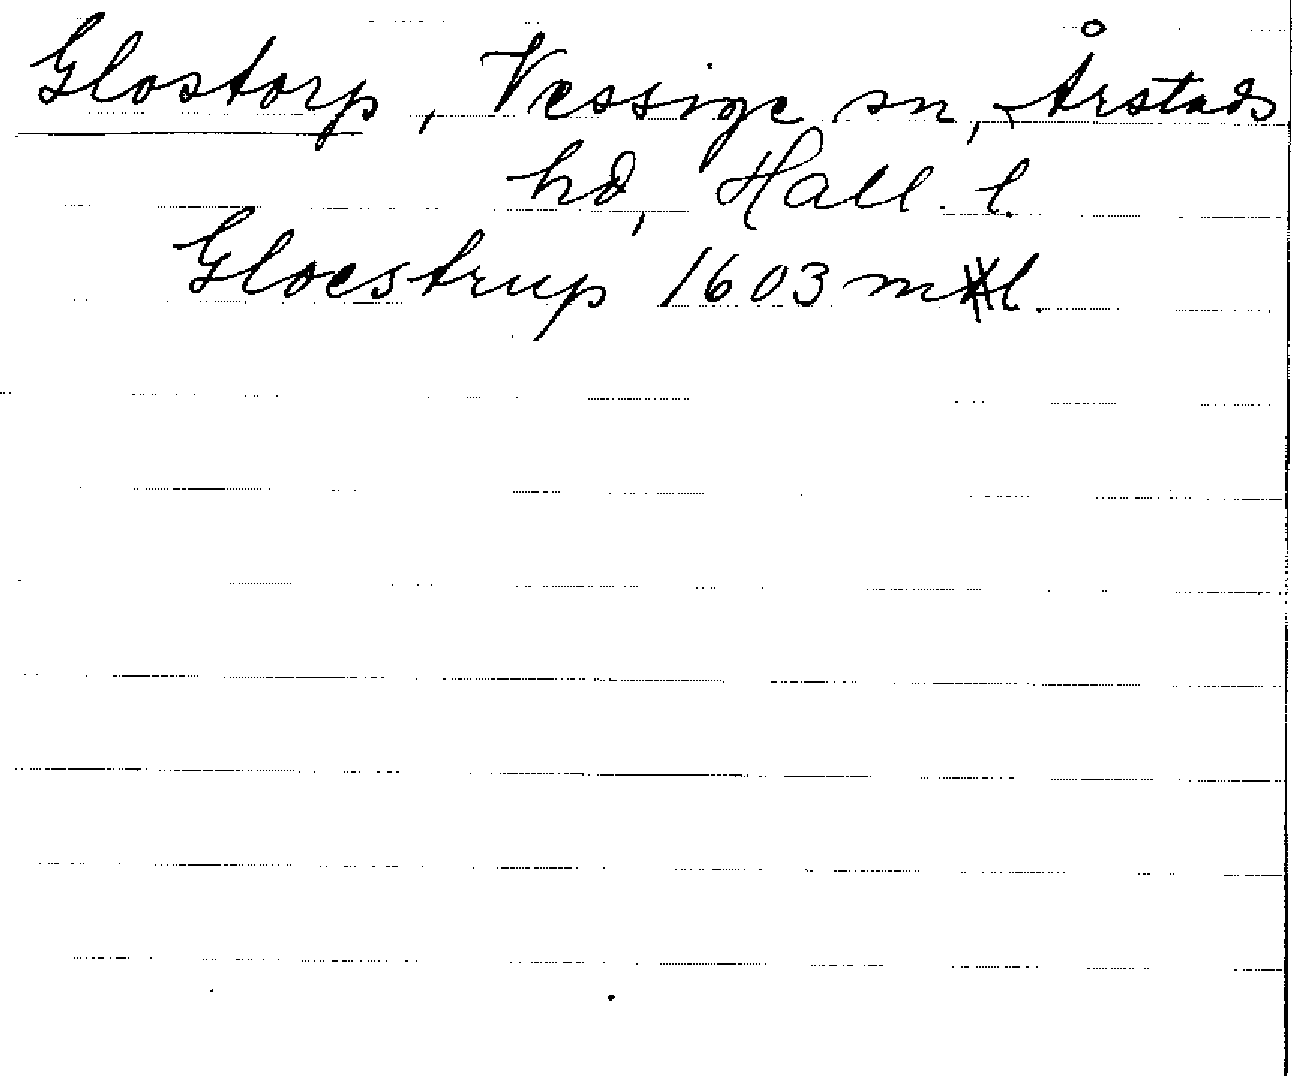 Glostorp, Vessige sn, Årstads
hd, Hall. l.
Gloestrup 1603 ml.